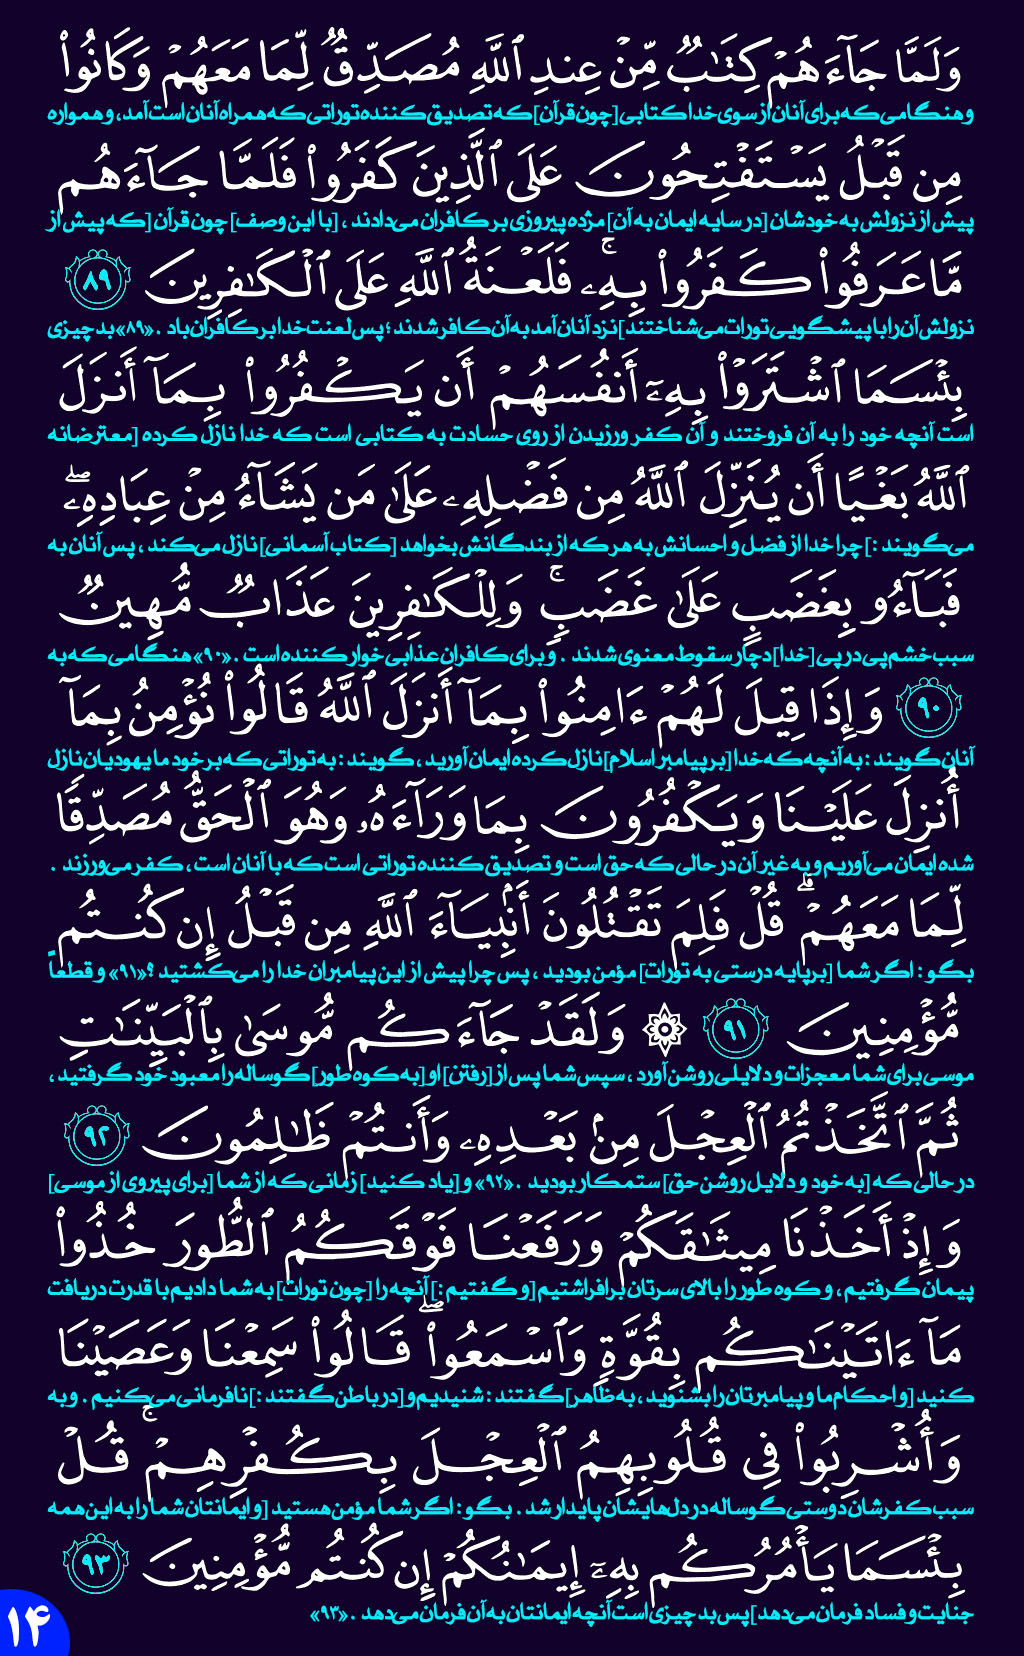 وَلَمَّا جَآءَهُمْ كِتَـٰبٌ مِّنْ عِندِ ٱللَّهِ مُصَدِّقٌ لِّمَا مَعَهُمْ وَكَانُوا۟
و هنگامی که برای آنان از سوی خدا کتابی [چون قرآن] که تصدیق کننده توراتی که همراه آنان است آمد، و همواره
مِن قَبْلُ يَسْتَفْتِحُونَ عَلَى ٱلَّذِينَ كَفَرُوا۟ فَلَمَّا جَآءَهُم
پیش از نزولش به خودشان [در سایه ایمان به آن] مژده پیروزی بر کافران می‌دادند ، [با این وصف] چون قرآن [که پیش از
مَّا عَرَفُوا۟ كَفَرُوا۟ بِهِۦ ۚ فَلَعْنَةُ ٱللَّهِ عَلَى ٱلْكَـٰفِرِينَ ۸۹
نزولش آن را با پیشگویی تورات می‌شناختند] نزد آنان آمد به آن کافر شدند ؛ پس لعنت خدا بر کافران باد . «۸۹» بد چیزی
بِئْسَمَا ٱشْتَرَوْا۟ بِهِۦٓ أَنفُسَهُمْ أَن يَكْفُرُوا۟ بِمَآ أَنزَلَ
است آنچه خود را به آن فروختند و آن کفر ورزیدن از روی حسادت به کتابی است که خدا نازل کرده [معترضانه
ٱللَّهُ بَغْيًا أَن يُنَزِّلَ ٱللَّهُ مِن فَضْلِهِۦ عَلَىٰ مَن يَشَآءُ مِنْ عِبَادِهِۦ ۖ
می‌گویند :] چرا خدا از فضل و احسانش به هر که از بندگانش بخواهد [کتاب آسمانی] نازل می‌کند ، پس آنان به
فَبَآءُو بِغَضَبٍ عَلَىٰ غَضَبٍ ۚ وَلِلْكَـٰفِرِينَ عَذَابٌ مُّهِينٌ
سبب خشم پی در پی [خدا] دچار سقوط معنوی شدند . و برای کافران عذابی خوار کننده است . «۹۰» هنگامی که به
۹۰ وَإِذَا قِيلَ لَهُمْ ءَامِنُوا۟ بِمَآ أَنزَلَ ٱللَّهُ قَالُوا۟ نُؤْمِنُ بِمَآ
آنان گویند : به آنچه که خدا [بر پیامبر اسلام] نازل کرده ایمان آورید ، گویند : به توراتی که بر خود ما یهودیان نازل
أُنزِلَ عَلَيْنَا وَيَكْفُرُونَ بِمَا وَرَآءَهُۥ وَهُوَ ٱلْحَقُّ مُصَدِّقًا
شده ایمان می‌آوریم و به غیر آن در حالی که حق است و تصدیق کننده توراتی است که با آنان است ، کفر می‌ورزند .
لِّمَا مَعَهُمْ ۗ قُلْ فَلِمَ تَقْتُلُونَ أَنۢبِيَآءَ ٱللَّهِ مِن قَبْلُ إِن كُنتُم
بگو : اگر شما [بر پایه درستی به تورات] مؤمن بودید ، پس چرا پیش از این پیامبران خدا را می‌کشتید ؟ «۹۱» و قطعاً
مُّؤْمِنِينَ ۹۱ ۞ وَلَقَدْ جَآءَكُم مُّوسَىٰ بِٱلْبَيِّنَـٰتِ
موسی برای شما معجزات و دلایلی روشن آورد ، سپس شما پس از [رفتن] او [به کوه طور] گوساله را معبود خود گرفتید ،
ثُمَّ ٱتَّخَذْتُمُ ٱلْعِجْلَ مِنۢ بَعْدِهِۦ وَأَنتُمْ ظَـٰلِمُونَ ۹۲
در حالی که [به خود و دلایل روشن حق] ستمکار بودید . «۹۲» و [یاد کنید] زمانی که از شما [برای پیروی از موسی]
وَإِذْ أَخَذْنَا مِيثَـٰقَكُمْ وَرَفَعْنَا فَوْقَكُمُ ٱلطُّورَ خُذُوا۟
پیمان گرفتیم ، و کوه طور را بالای سرتان برافراشتیم [و گفتیم :] آنچه را [چون تورات] به شما دادیم با قدرت دریافت
مَآ ءَاتَيْنَـٰكُم بِقُوَّةٍ وَٱسْمَعُوا۟ ۖ قَالُوا۟ سَمِعْنَا وَعَصَيْنَا
کنید [و احکام ما و پیامبرتان را بشنوید ، به ظاهر] گفتند : شنیدیم و [در باطن گفتند :] نافرمانی می‌کنیم . و به
وَأُشْرِبُوا۟ فِى قُلُوبِهِمُ ٱلْعِجْلَ بِكُفْرِهِمْ ۚ قُلْ
سبب کفرشان دوستی گوساله در دل‌هایشان پایدار شد . بگو : اگر شما مؤمن هستید [و ایمانتان شما را به این همه
بِئْسَمَا يَأْمُرُكُم بِهِۦٓ إِيمَـٰنُكُمْ إِن كُنتُم مُّؤْمِنِينَ ۹۳
جنایت و فساد فرمان می‌دهد] پس بد چیزی است آنچه ایمانتان به آن فرمان می‌دهد . «۹۳»
۱۴